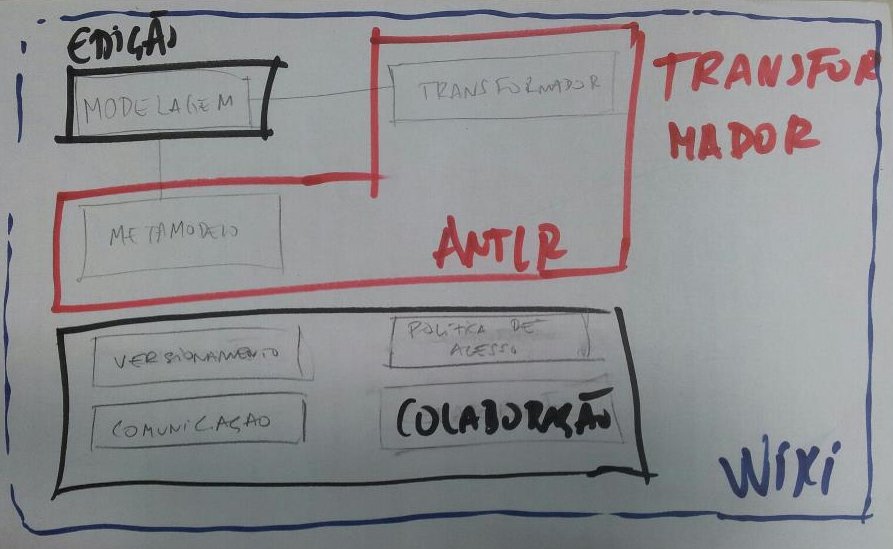 EDIÇÃO
MODELAGEM
TRANSFORMADOR
TRANSFOR
MADOR
METAMODELO
ANTLR
VERSIONAMENTO
POLÍTICA DE
ACESSO
COMUNICAÇÃO
COLABORAÇÃO
Wiki